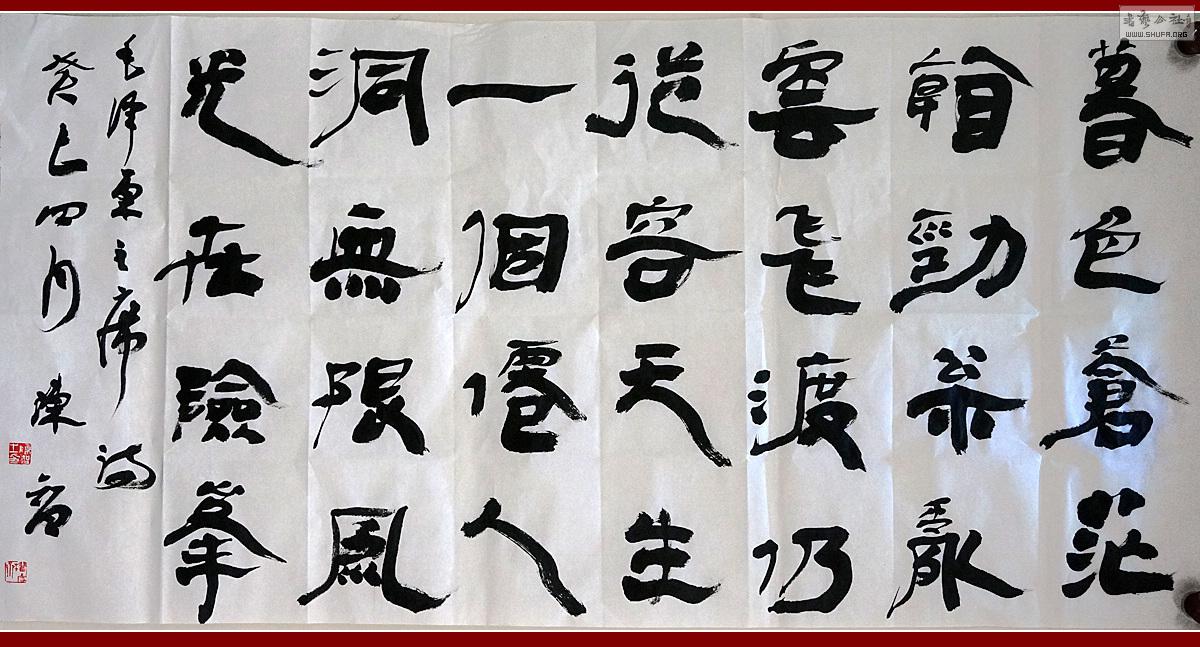 暮色蒼茫
看勁枀亂
雲飛渡仍
從容天生
一個僊人
洞無限風
光在險峯
毛澤東主席詩
癸巳四月 陳
書藝公社
WWW.SHUFA.ORG